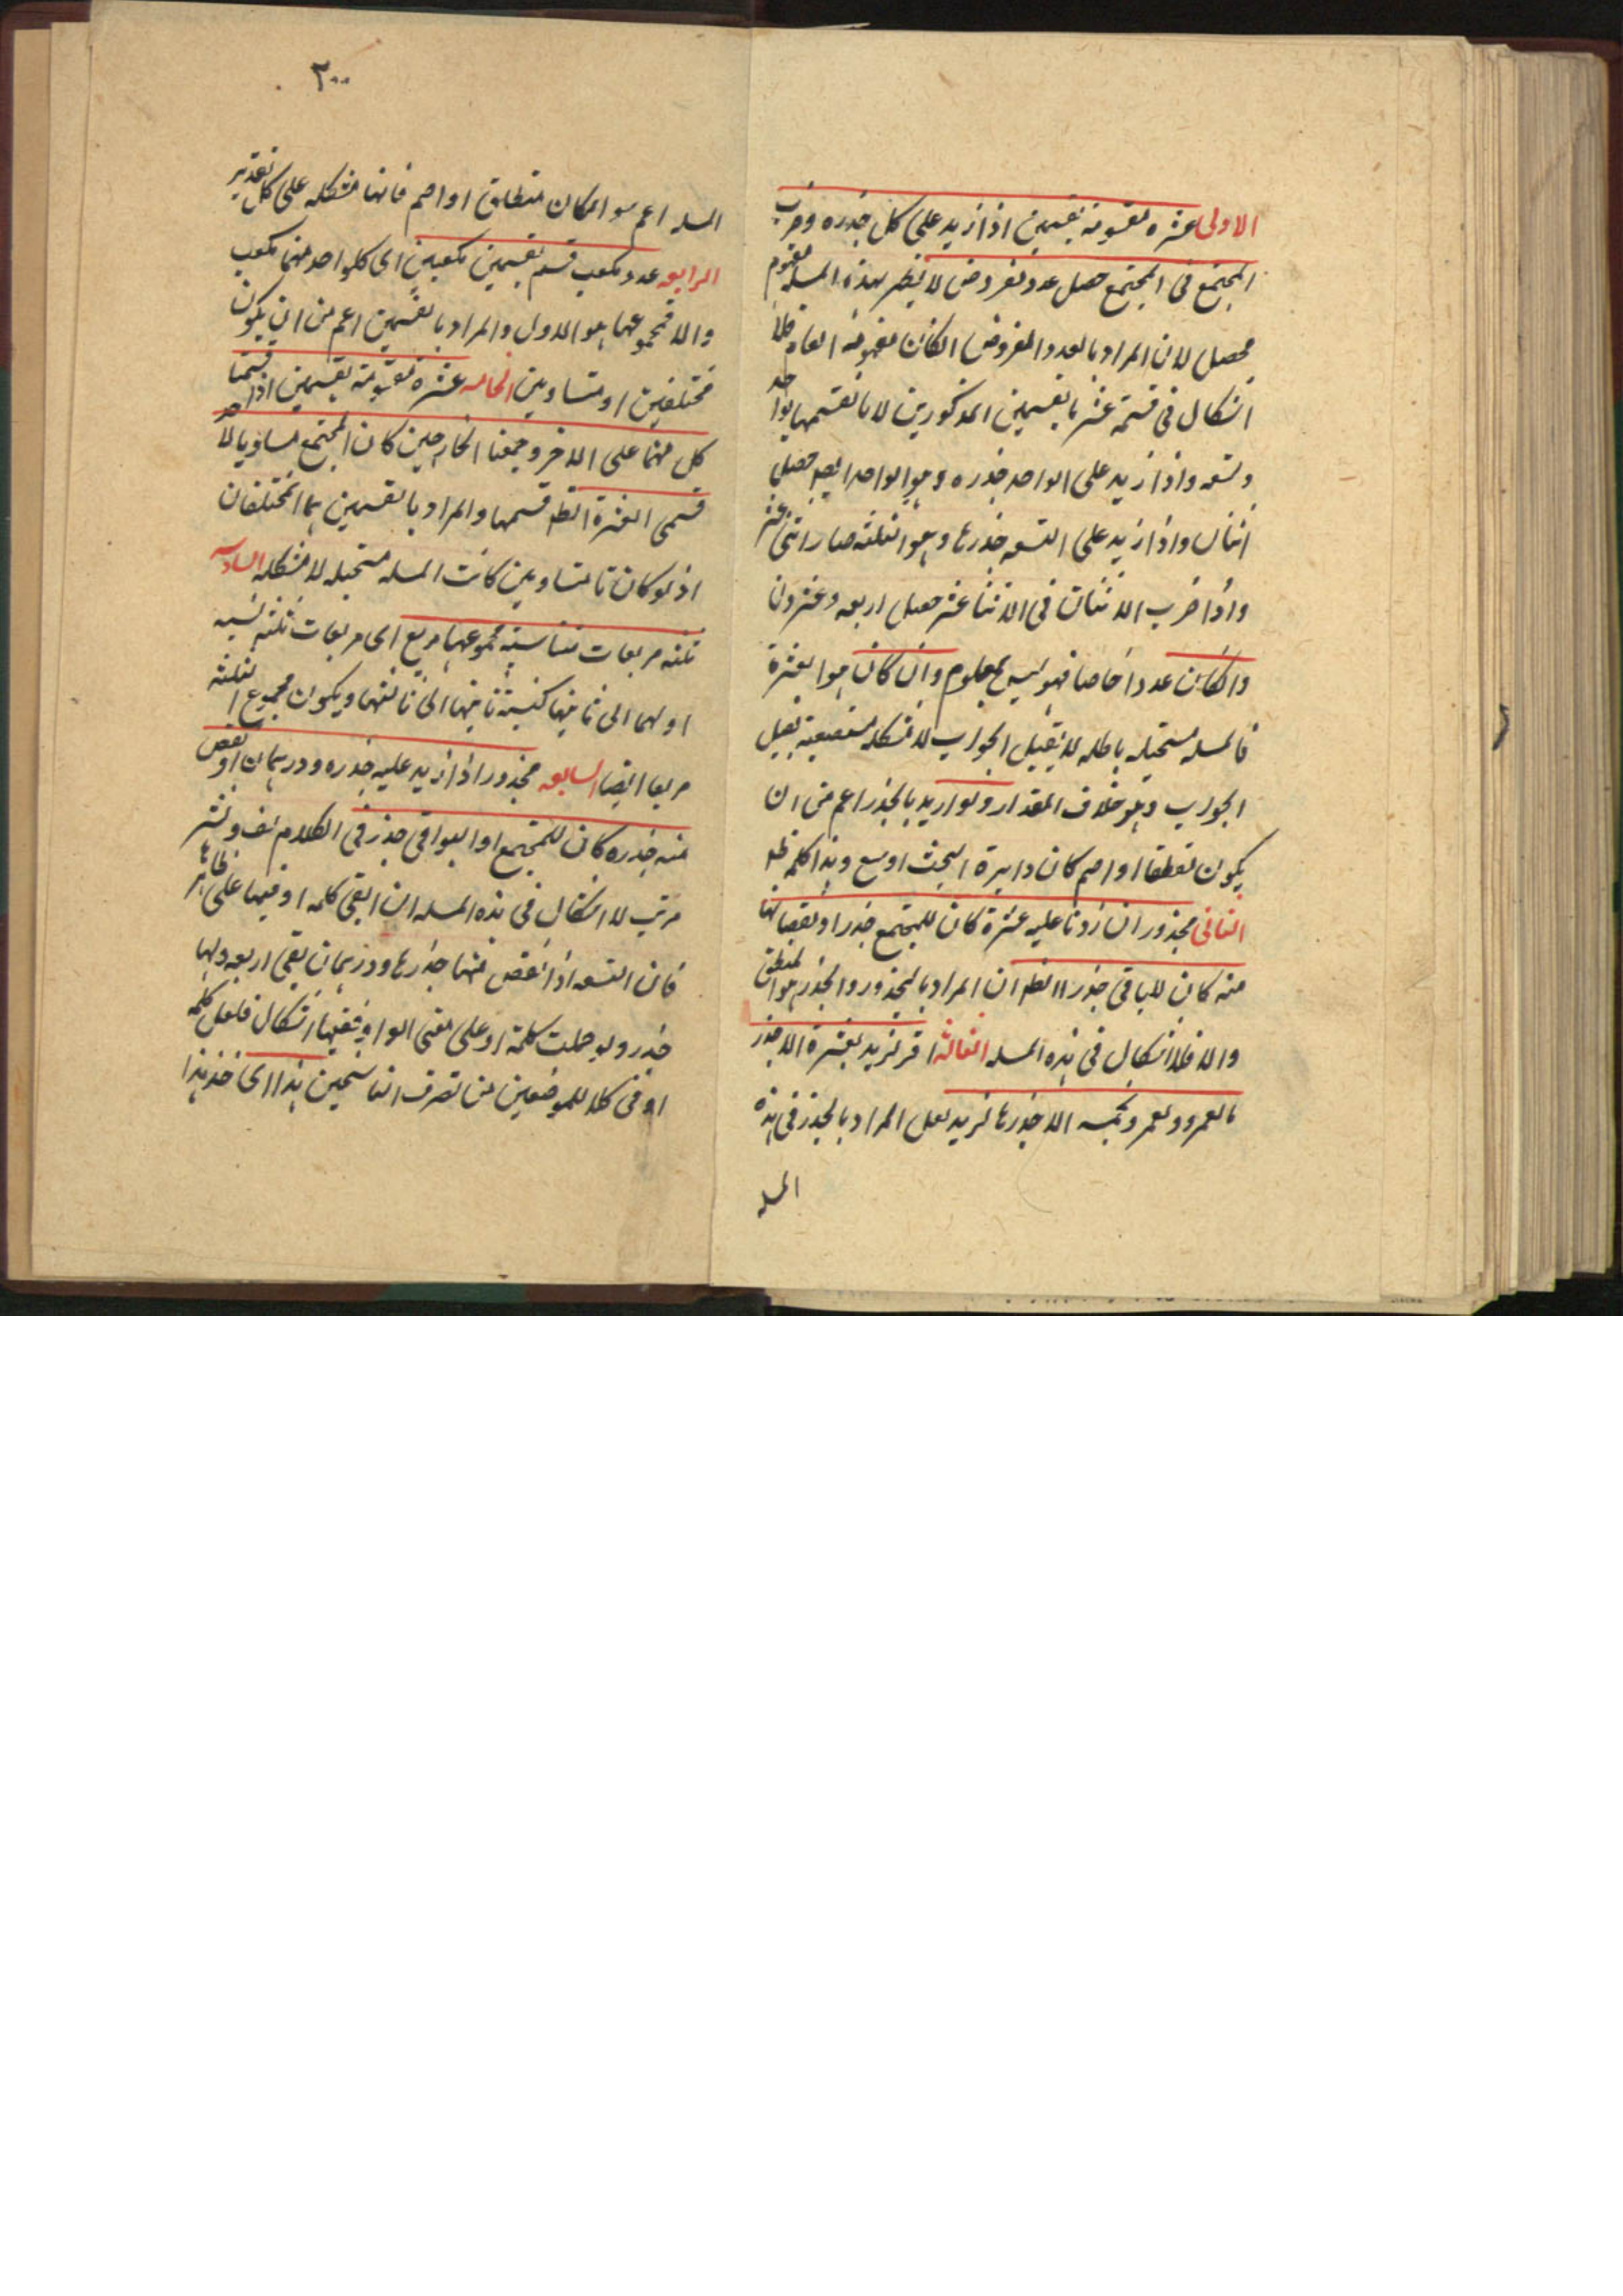 الاولى عشره مقسومة بقسمين اذا زيد على كل جذره وضرب
المجتمع فى المجتمع حصل عدد مفروض لا يظهر لهذه المسله مفهوم
محصل لان المراد بالعدد المفروض انكان مفهومه العام فلا
اشكال فى قسمة عشر بالقسمين المذكورين لانا نقسمها بواحد
وتسعه واذا زيد على الواحد جذره وهو الواحد ايضا حصل
اثنان واذا زيد على التسعه جذرها وهو الثلثه صار اثنى عشر
واذا ضرب الاثنان فى الاثنا عشر حصل اربعه وعشرون
وانكان عددا خاصا فهو ليس بمعلوم وان كان هو العشرة
فالمسله مستحيله باطله لا يقبل الجواب لا مشكله مستصعبة يقبل
الجواب وهو خلاف المقدار ولو اريد بالجذر اعم من ان
يكون منطقا او اصم كان دايرة البحث اوسع وهذا كله ظ
الثانى مجذور ان زدنا عليه عشرة كان للمجتمع جذر او نقصناها
منه كان للباقى جذر الظ ان المراد بالمجذور والجذر هو المنطق
والا فلا اشكال فى هذه المسله الثالثه اقر لزيد بعشرة الا جذر
ما لعمرو ولعمرو بخمسه الا جذر ما لزيد لعل المراد بالجذر فى هذه
المسله
٢٠٠
المسله اعم سوا كان منطلق او اصم فانها مشكله على كل تقدير
الرابعه عدد مكعب قسم بقسمين مكعبين اى كلواحد منهما مكعب
والا فمجموعهما هو الاول والمراد بالقسمين اعم من ان يكون
مختلفين او متساويين الخامسه عشرة مقسومة بقسمين اذا قسمنا
كل منهما على الاخر وجمعنا الخارجين كان المجتمع مساويا لاحد
قسمى العشرة الظ قسمها والمراد بالقسمين هما المختلفان
اذ لو كانا متساويين كانت المسله مستحيله لا مشكله السادسه
ثلثه مربعات متناسبة مجموعها مربع اى مربعات ثلثه نسبه
اولهما الى ثانيها كنسبة ثانيها الى ثالثها ويكون مجموع الثلثه
مربعا ايضا السابعه مجذور اذا زيد عليه جذره ودرهمان او نقص
منه جذره كان للمجتمع او البواقى جذر فى الكلام لف ونشر
مرتب لا اشكال فى هذه المسله ان ابقى كلمه او فيها على ظاهرها
فان التسعه اذا نقص منها جذرها ودرهمان بقى اربعه ولها
جذر ولو حملت كلمة او على معنى الواو ففيها اشكال فلعل كلمه
او فى كلا الموضعين من تصرف الناسخين هذا اى خذ هذا